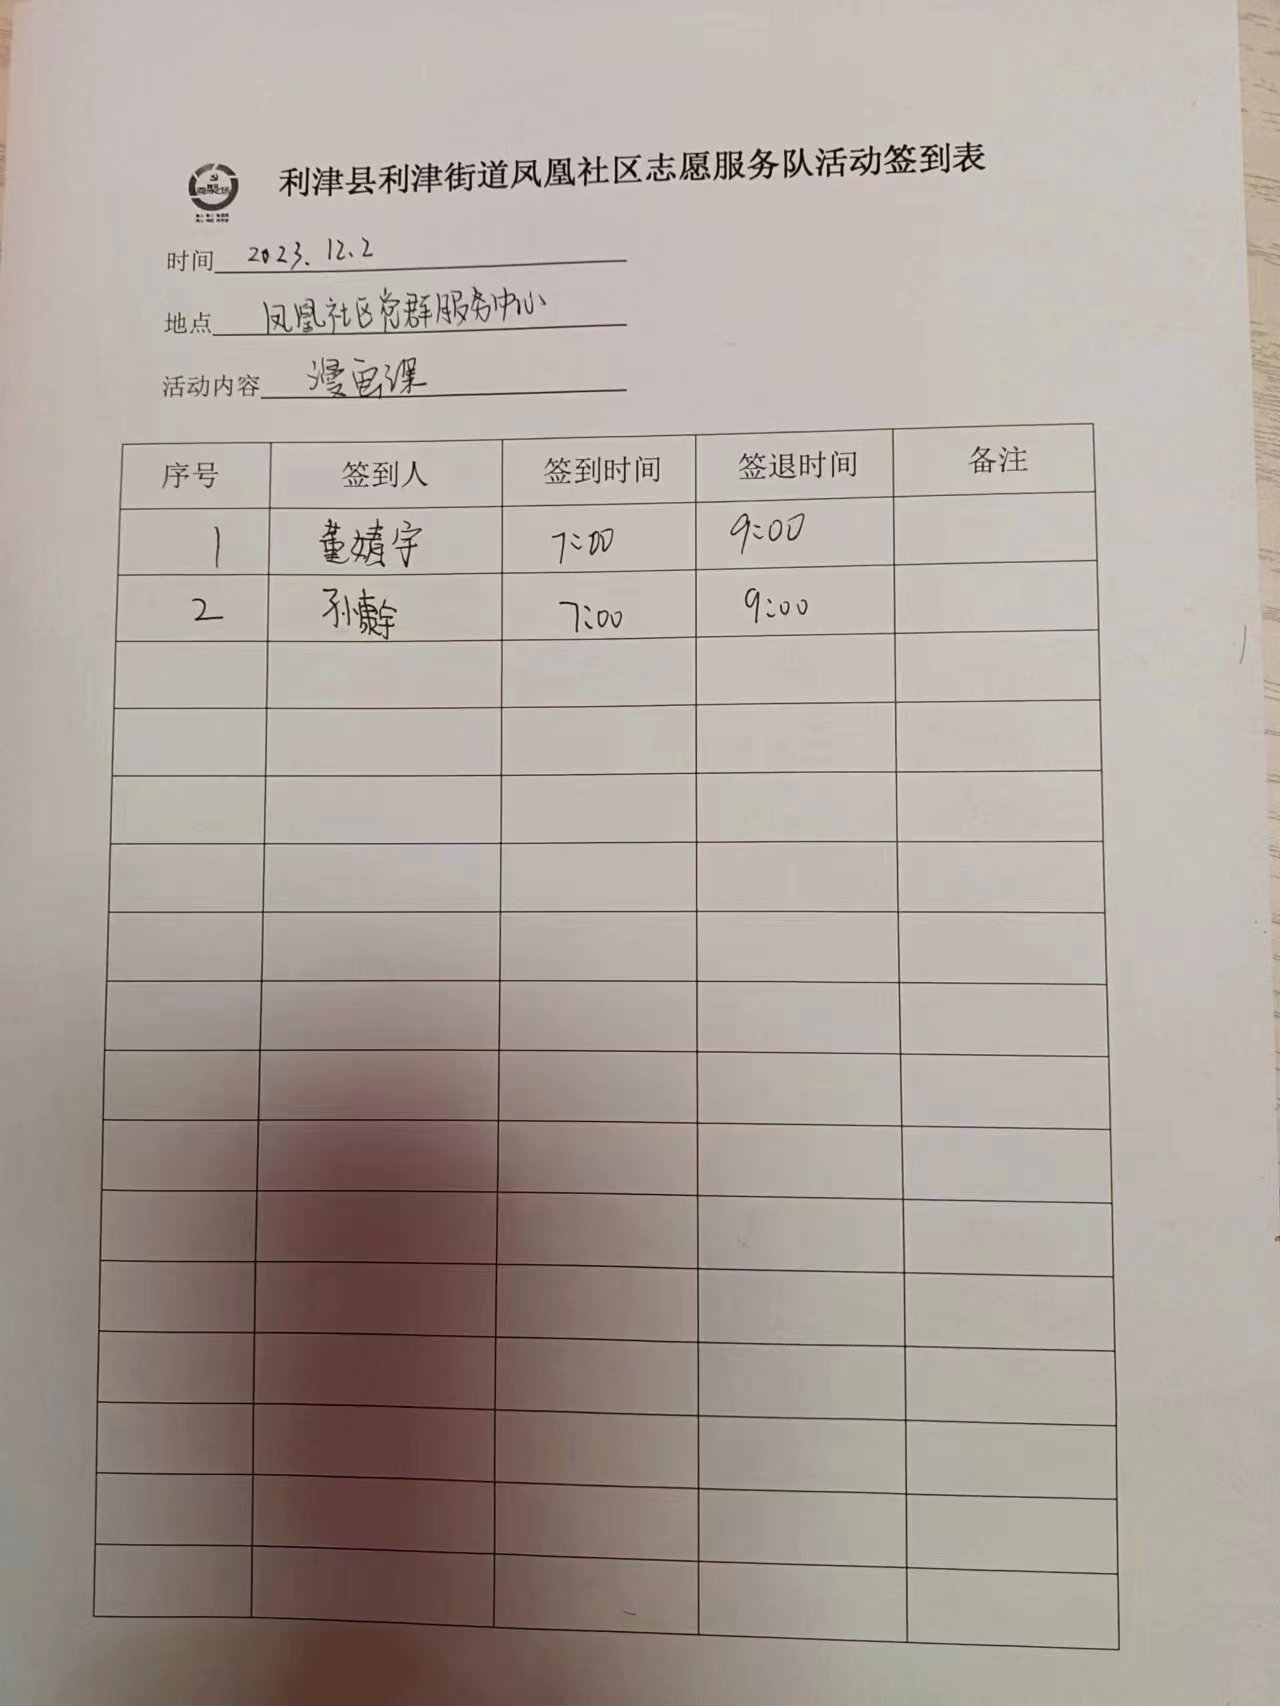 利津县利津街道凤凰社区志愿服务队活动签到表
时间 2023.12.2
地点 凤凰社区党群服务中心
活动内容 漫画课
序号 签到人 签到时间 签退时间 备注
1 董婧宇 7:00 9:00
2 孙康宇 7:00 9:00